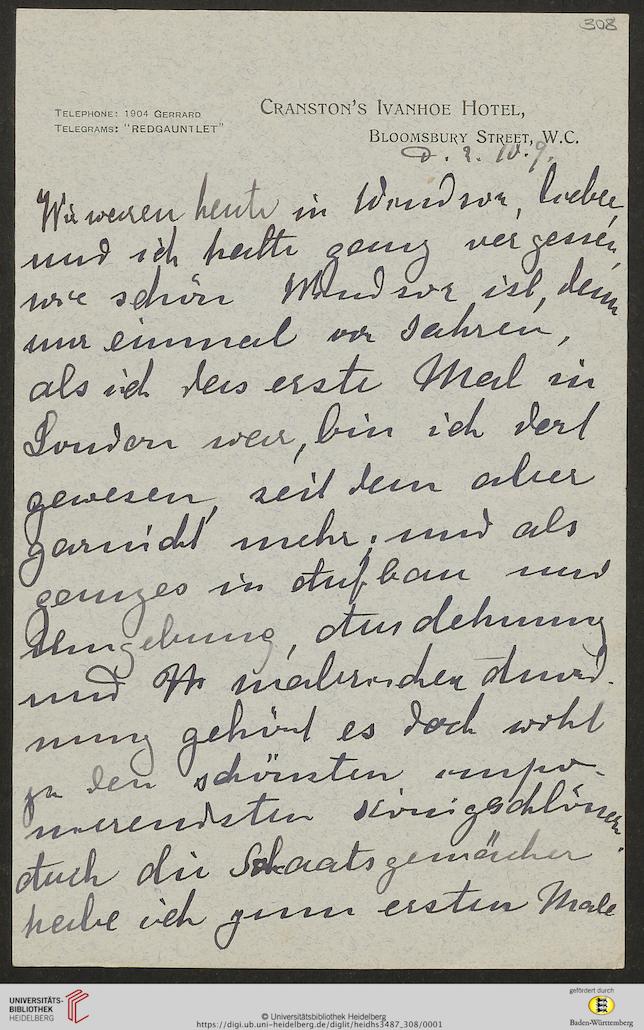 308
TELEPHONE: 1904 GERRARD
TELEGRAMS: "REDGAUNTLET"
CRANSTON'S IVANHOE HOTEL,
BLOOMSBURY STREET, W.C.
D. 2. 10. 9.
Wir waren heute in Windsor, Lieber,
und ich hatte ganz vergessen,
wie schön Windsor ist, denn
nur einmal vor Jahren,
als ich das erste Mal in
London war, bin ich dort
gewesen, seitdem aber
garnicht mehr; und als
ganzes in Aufbau und
Umgebung, Ausdehnung
und malerischer Anord-
nung gehört es doch wohl
zu den schönsten impo-
nierendsten Königschlössern.
Auch die Staatsgemächer
habe ich zum ersten Male
UNIVERSITÄTS-
BIBLIOTHEK
HEIDELBERG
© Universitätsbibliothek Heidelberg
https://digi.ub.uni-heidelberg.de/diglit/heidhs3487_308/0001
gefördert durch
Baden-Württemberg